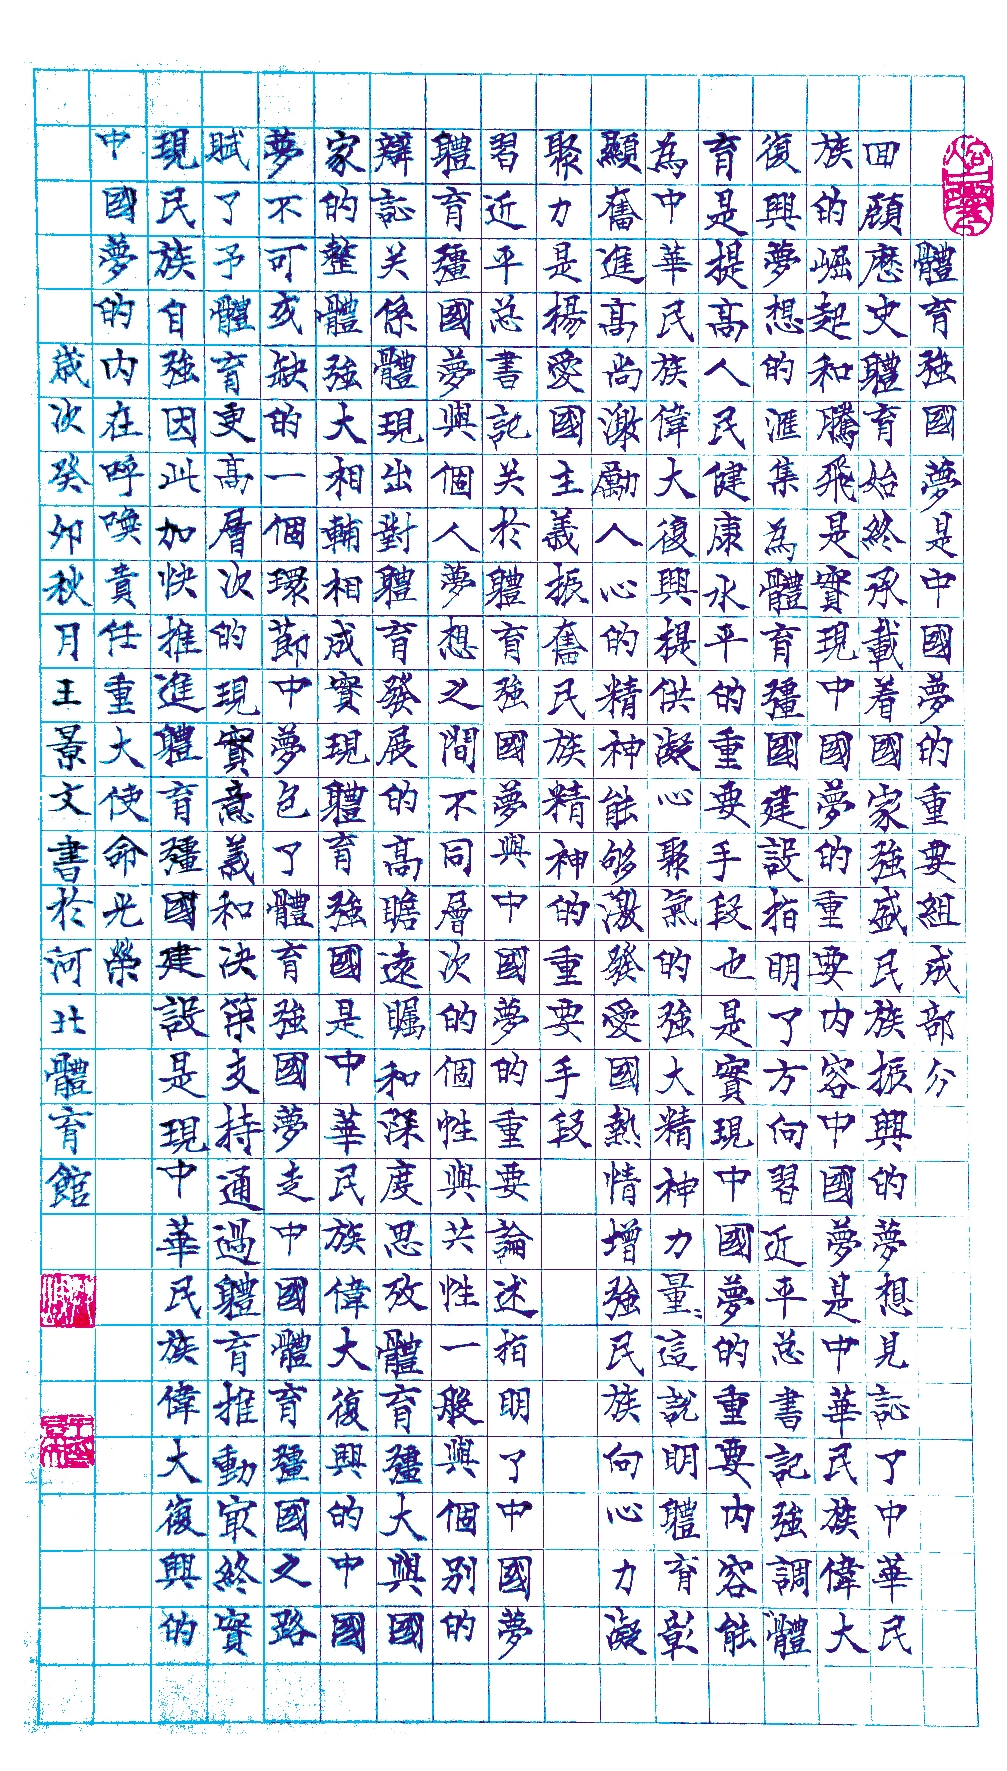 體育強國夢是中國夢的重要組成部分
回顧歷史體育始終承載着國家強盛民族振興的夢想見証了中華民
族的崛起和騰飛是實現中國夢的重要内容中國夢是中華民族偉大
復興夢想的滙集為體育疆國建設指明了方向習近平总書記強調體
育是提高人民健康水平的重要手段也是實現中國夢的重要内容能
為中華民族偉大復興提供凝心聚氣的強大精神力量這說明體育彰
顯奮進高尚激勵人心的精神能够激發愛國熱情增強民族向心力凝
聚力是揚愛國主義振奮民族精神的重要手段
習近平总書記关於體育強國夢與中國夢的重要論述指明了中國夢
體育疆國夢與個人夢想之間不同層次的個性與共性一般與個別的
辯証关係體現出對體育發展的高瞻遠矚和深度思攷體育疆大興國
家的整體強大相輔相成實現體育強國是中華民族偉大復興的中國
夢不可或缺的一個環節中夢包了體育強國夢走中國體育疆國之路
賦了予體育更高層次的現實意義和決築支持通過體育推動最終實
現民族自強因此加快推進體育疆國建設是現中華民族偉大復興的
中國夢的内在呼喚責任重大使命光榮
歲次癸卯秋月王景文書於河北體育館